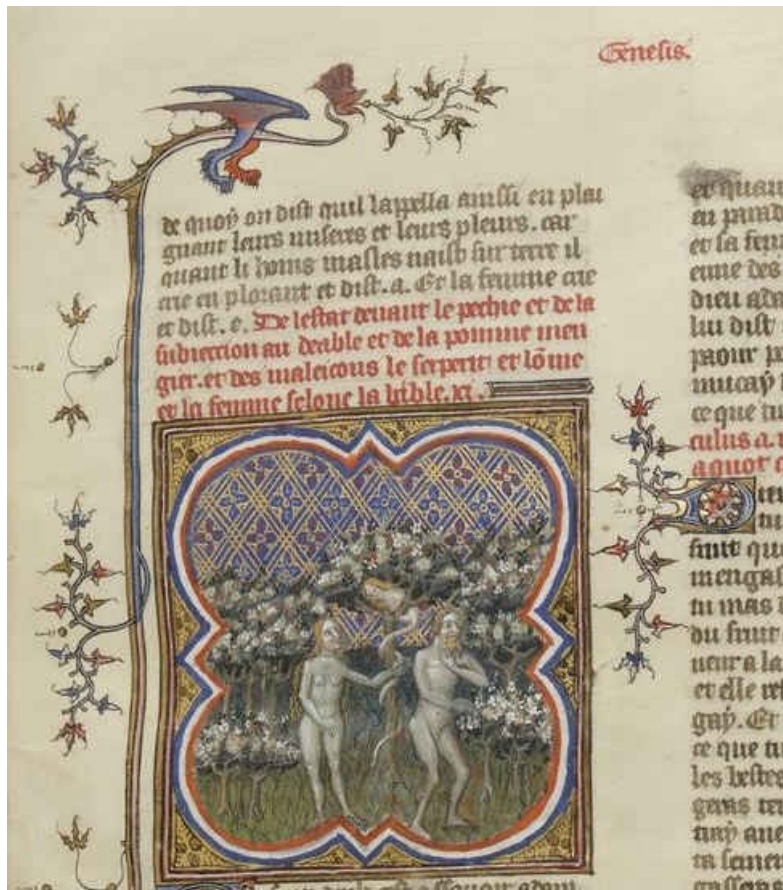 Genesis.
de quoy on dist quil lappella aussi en plai
gnant leurs miseres et leurs pleurs. car
quant li homs masles naist sur terre il
crie en plorant et dist. a. Et la femme crie
et dist. e. De lestat deuant le pechie et de la
subiection au deable et de la pomme men
gier. et des maleicons le serpent et lōme
et la femme selonc la bible. xi.
et quant
au parad
et sa fem
dieu ad
lui dist
paour
mucay
ce que tu
culus a.
a quot
fruit que
mengas
tu mas
du fruit
et elle
gay. Et
ce que tu
les bestes